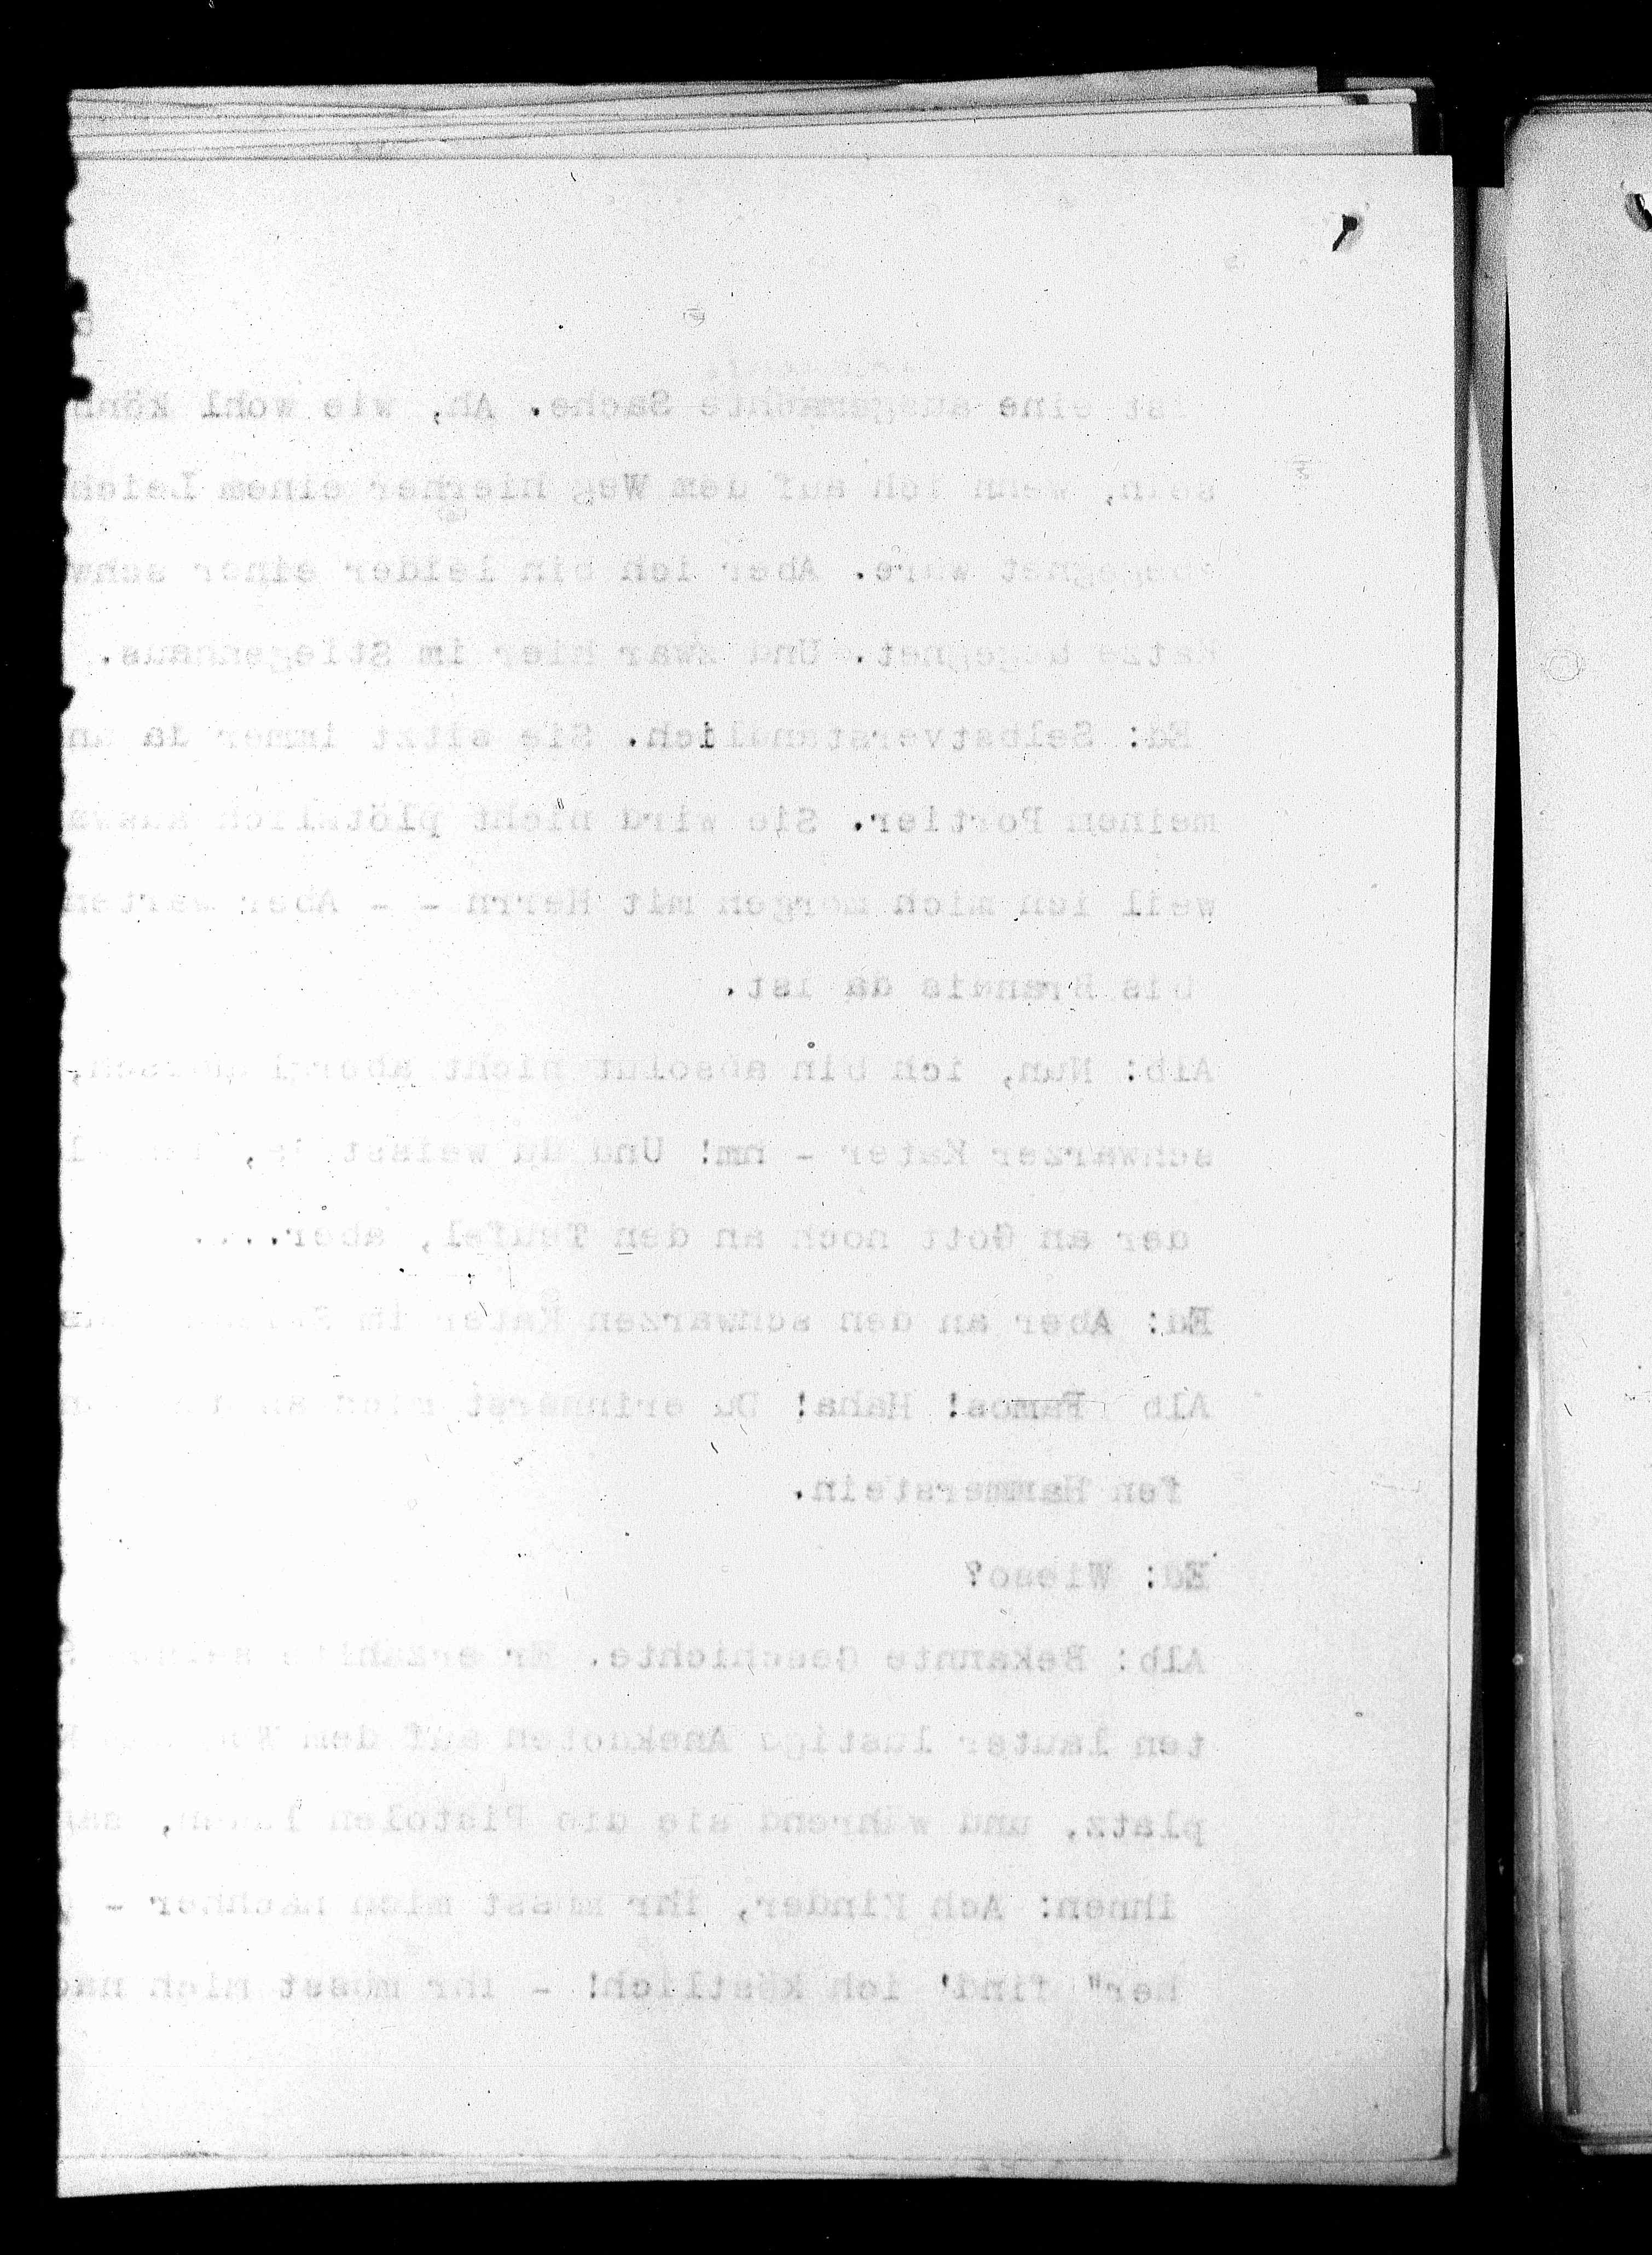 st eine ausgemachte Sache. Ah, wie wohl könn
sein, wenn ich auf dem Weg hierher einem Leich
begegnet wäre. Aber ich bin leider einer schw
Katze begegnet. Und zwar hier im Stiegenhaus.
Ed: Selbstverständlich. Sie sitzt immer da un
meinem Portier. Sie wird nicht plötzlich ausw
weil ich mich morgen mit Herrn - - Aber warten
bis da ist.
Alb: Nun, ich bin absolut nicht abergläubisch,
schwarzer Kater - hm! Und du weisst ja,
der an Gott noch an den Teufel, aber....
Ed: Aber an den schwarzen Kater im
Alb Famos! Haha! Du erinnerst mich an
fen Hammerstein.
Ed: Wieso?
Alb: Bekannte Geschichte. Er erzählte seinen S
ten lauter lustige Anekdoten auf dem
platz, und während sie die Pistolen laden, sag
ihnen: Ach Kinder, ihr müsst mich nachher -
her" find' ich köstlich! - ihr müsst mich nac